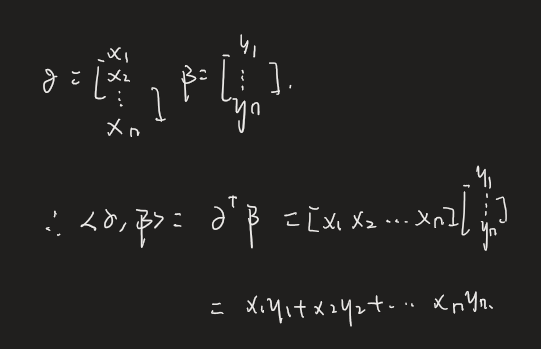 ∂ = [x₁ x₂ ⋮ xₙ] β = [y₁ ⋮ yₙ].
∴ <∂, β> = ∂ᵀ β = [x₁ x₂ ⋯ xₙ] [y₁ ⋮ yₙ]
= x₁y₁ + x₂y₂ + ⋯ xₙyₙ.